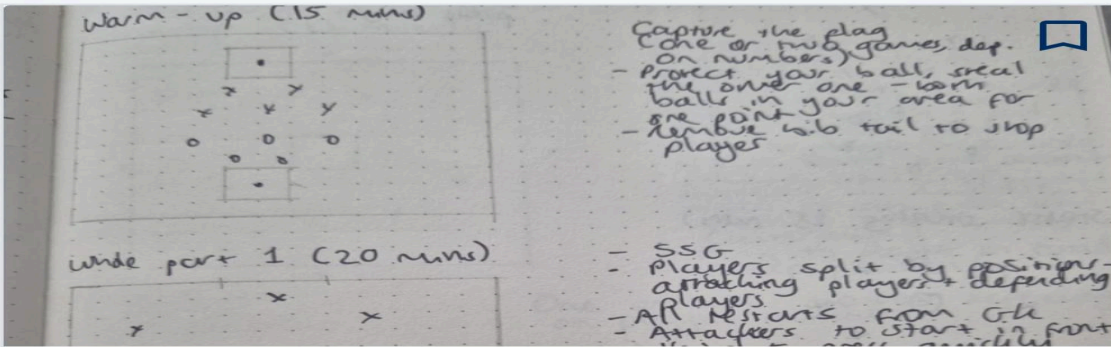 Warm-up (15 mins)
Capture the flag
(one or two games, dep.
on numbers)
- Protect your ball, steal
the other one - both
balls in your area for
one point
- Remove bib tail to stop
player
Whole part 1 (20 mins)
- SSG
- Players split by positions -
attacking players + defending
players
- All restarts from GK
- Attackers to start in front